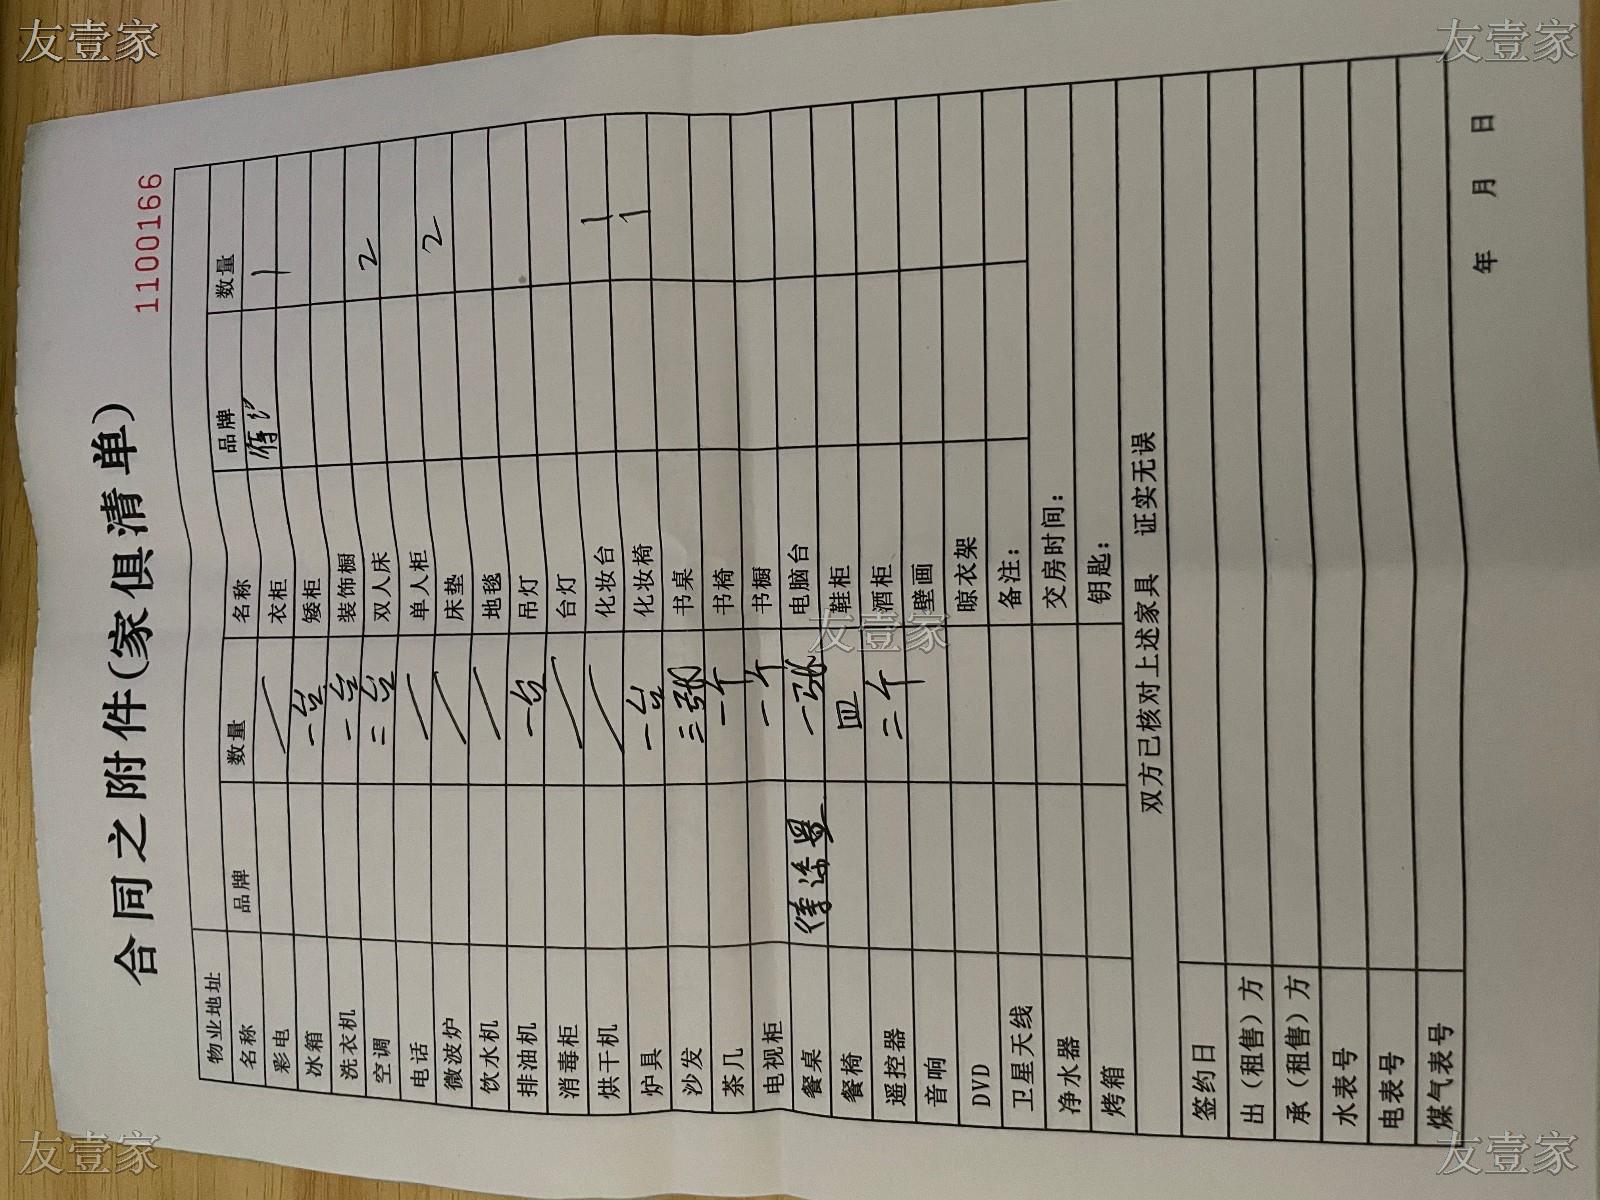 友壹家
友壹家
1100166
合同之附件(家俱清单)
物业地址
名称 品牌 数量 名称 品牌 数量
彩电 / 衣柜 1
冰箱 一台 矮柜
洗衣机 一台 装饰橱
空调 二台 双人床 2
电话 / 单人柜
微波炉 / 床垫 2
饮水机 / 地毯
排油机 一台 吊灯
消毒柜 / 台灯
烘干机 / 化妆台 1
炉具 一台 化妆椅 1
沙发 三张 书桌
茶几 一个 书椅
电视柜 一个 书橱
餐桌 一张 电脑台
餐椅 四 鞋柜
遥控器 二个 酒柜
音响 壁画
DVD 晾衣架
卫星天线 备注：
净水器 交房时间：
烤箱 钥匙：
双方已核对上述家具 证实无误
签约日
出（租售）方
承（租售）方
水表号
电表号
煤气表号
年 月 日
友壹家
友壹家
友壹家